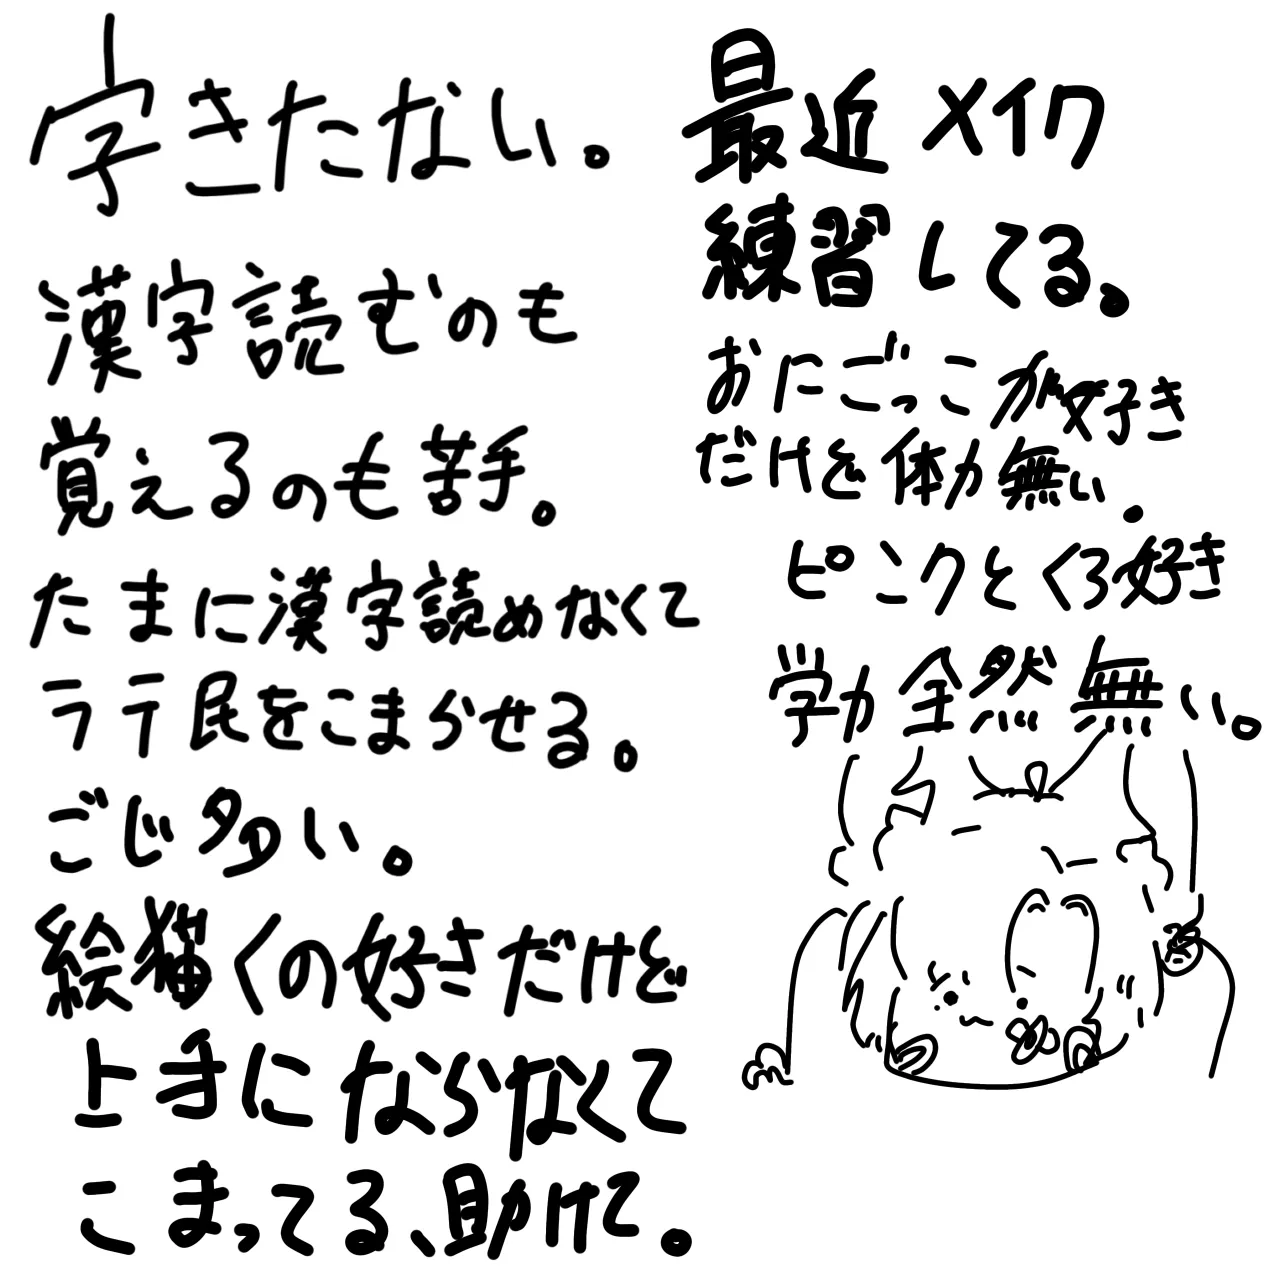 字きたない。
漢字読むのも
覚えるのも苦手。
たまに漢字読めなくて
ラテ民をこまらせる。
ごじ多い。
絵猫くの好きだけど
上手にならなくて
こまってる、助けて。
最近メイク
練習してる。
おにごっこが好き
だけど体力無い。
ピンクとくろ好き
学力全然無い。